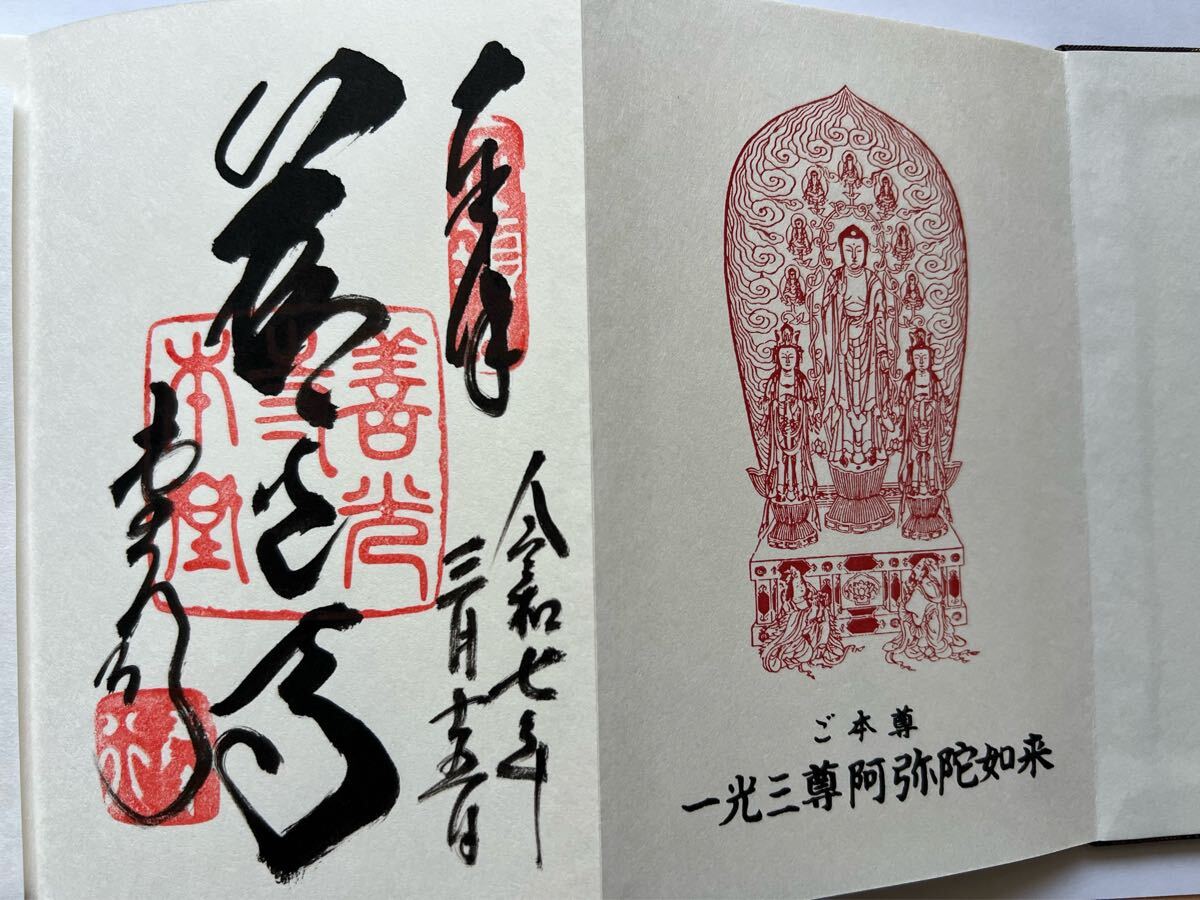 奉拝
令和七年
三月十五日
善光寺
善光
寺
本堂
ご本尊
一光三尊阿弥陀如来